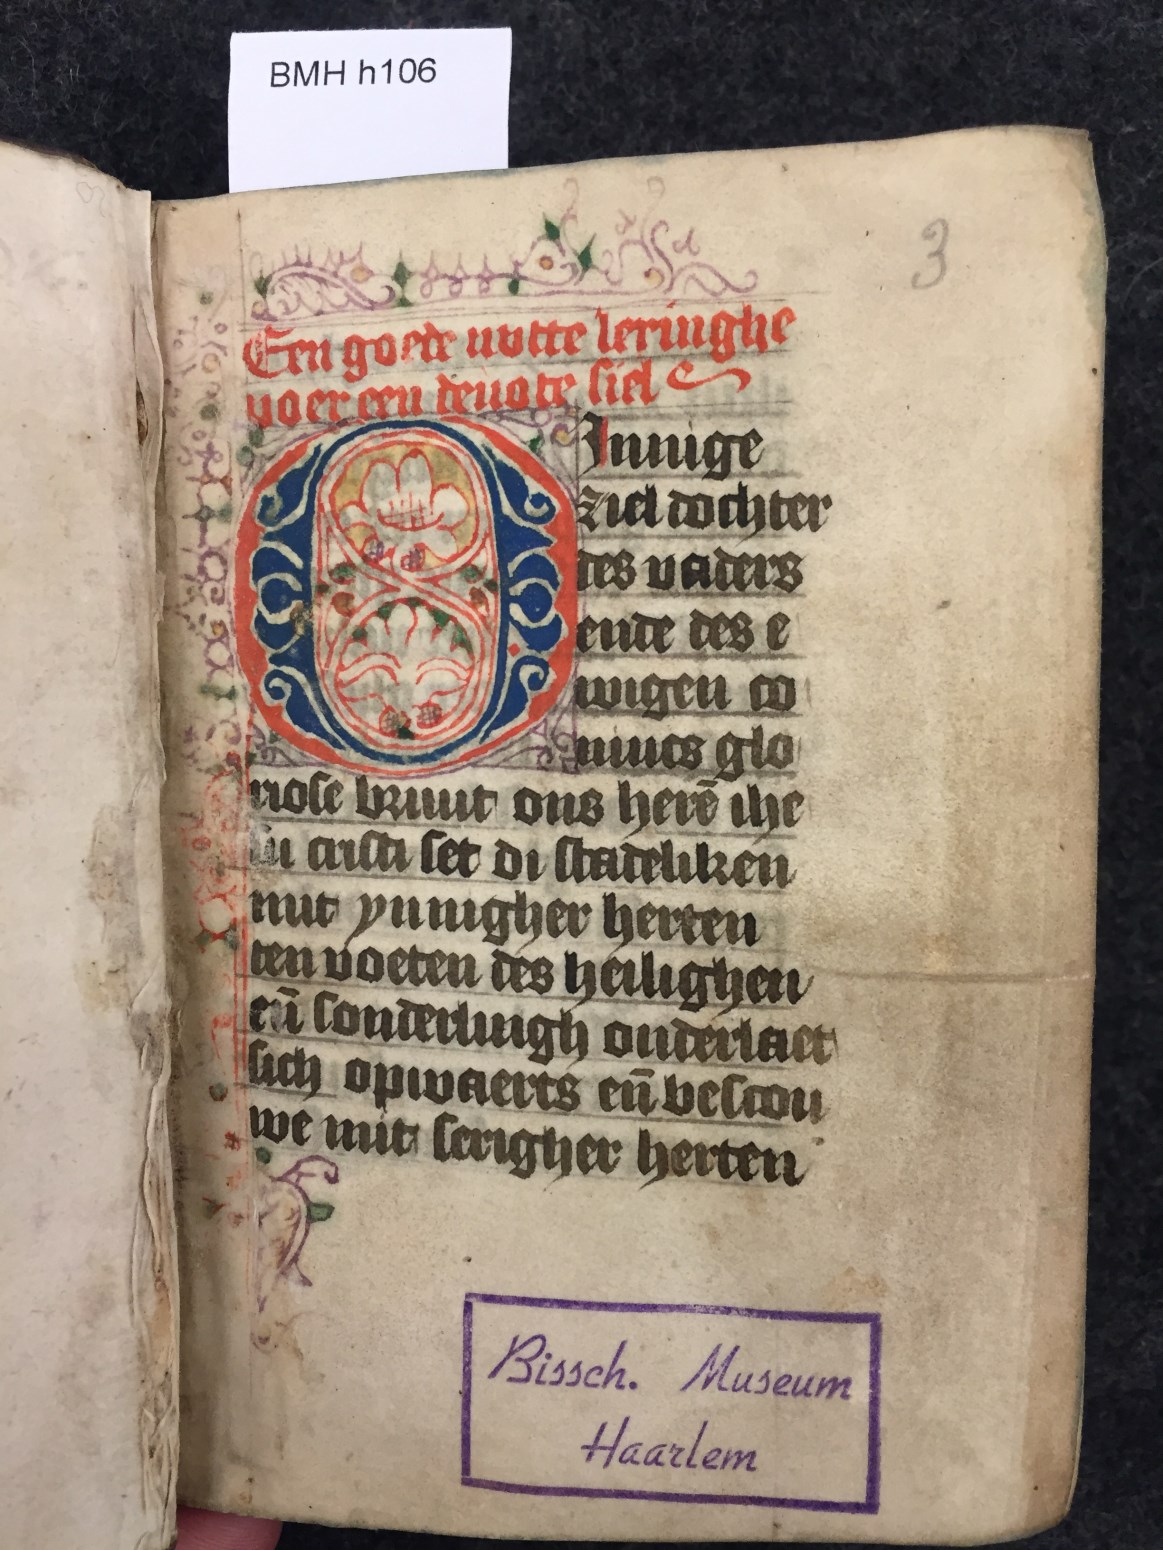 BMH h106
3
Een goede nutte leringhe
voer een deuote siel
O Innige
ziel dochter
des vaders
ende des e
wigen co
nincs glo
riose bruut ons herē ihe
su cristi set di stadeliken
mit ynnigher herten
ten voeten des heilighen
eñ sonderlingh onderlaet
sich opwaerts eñ bescou
we mit serigher herten
Bissch. Museum
Haarlem